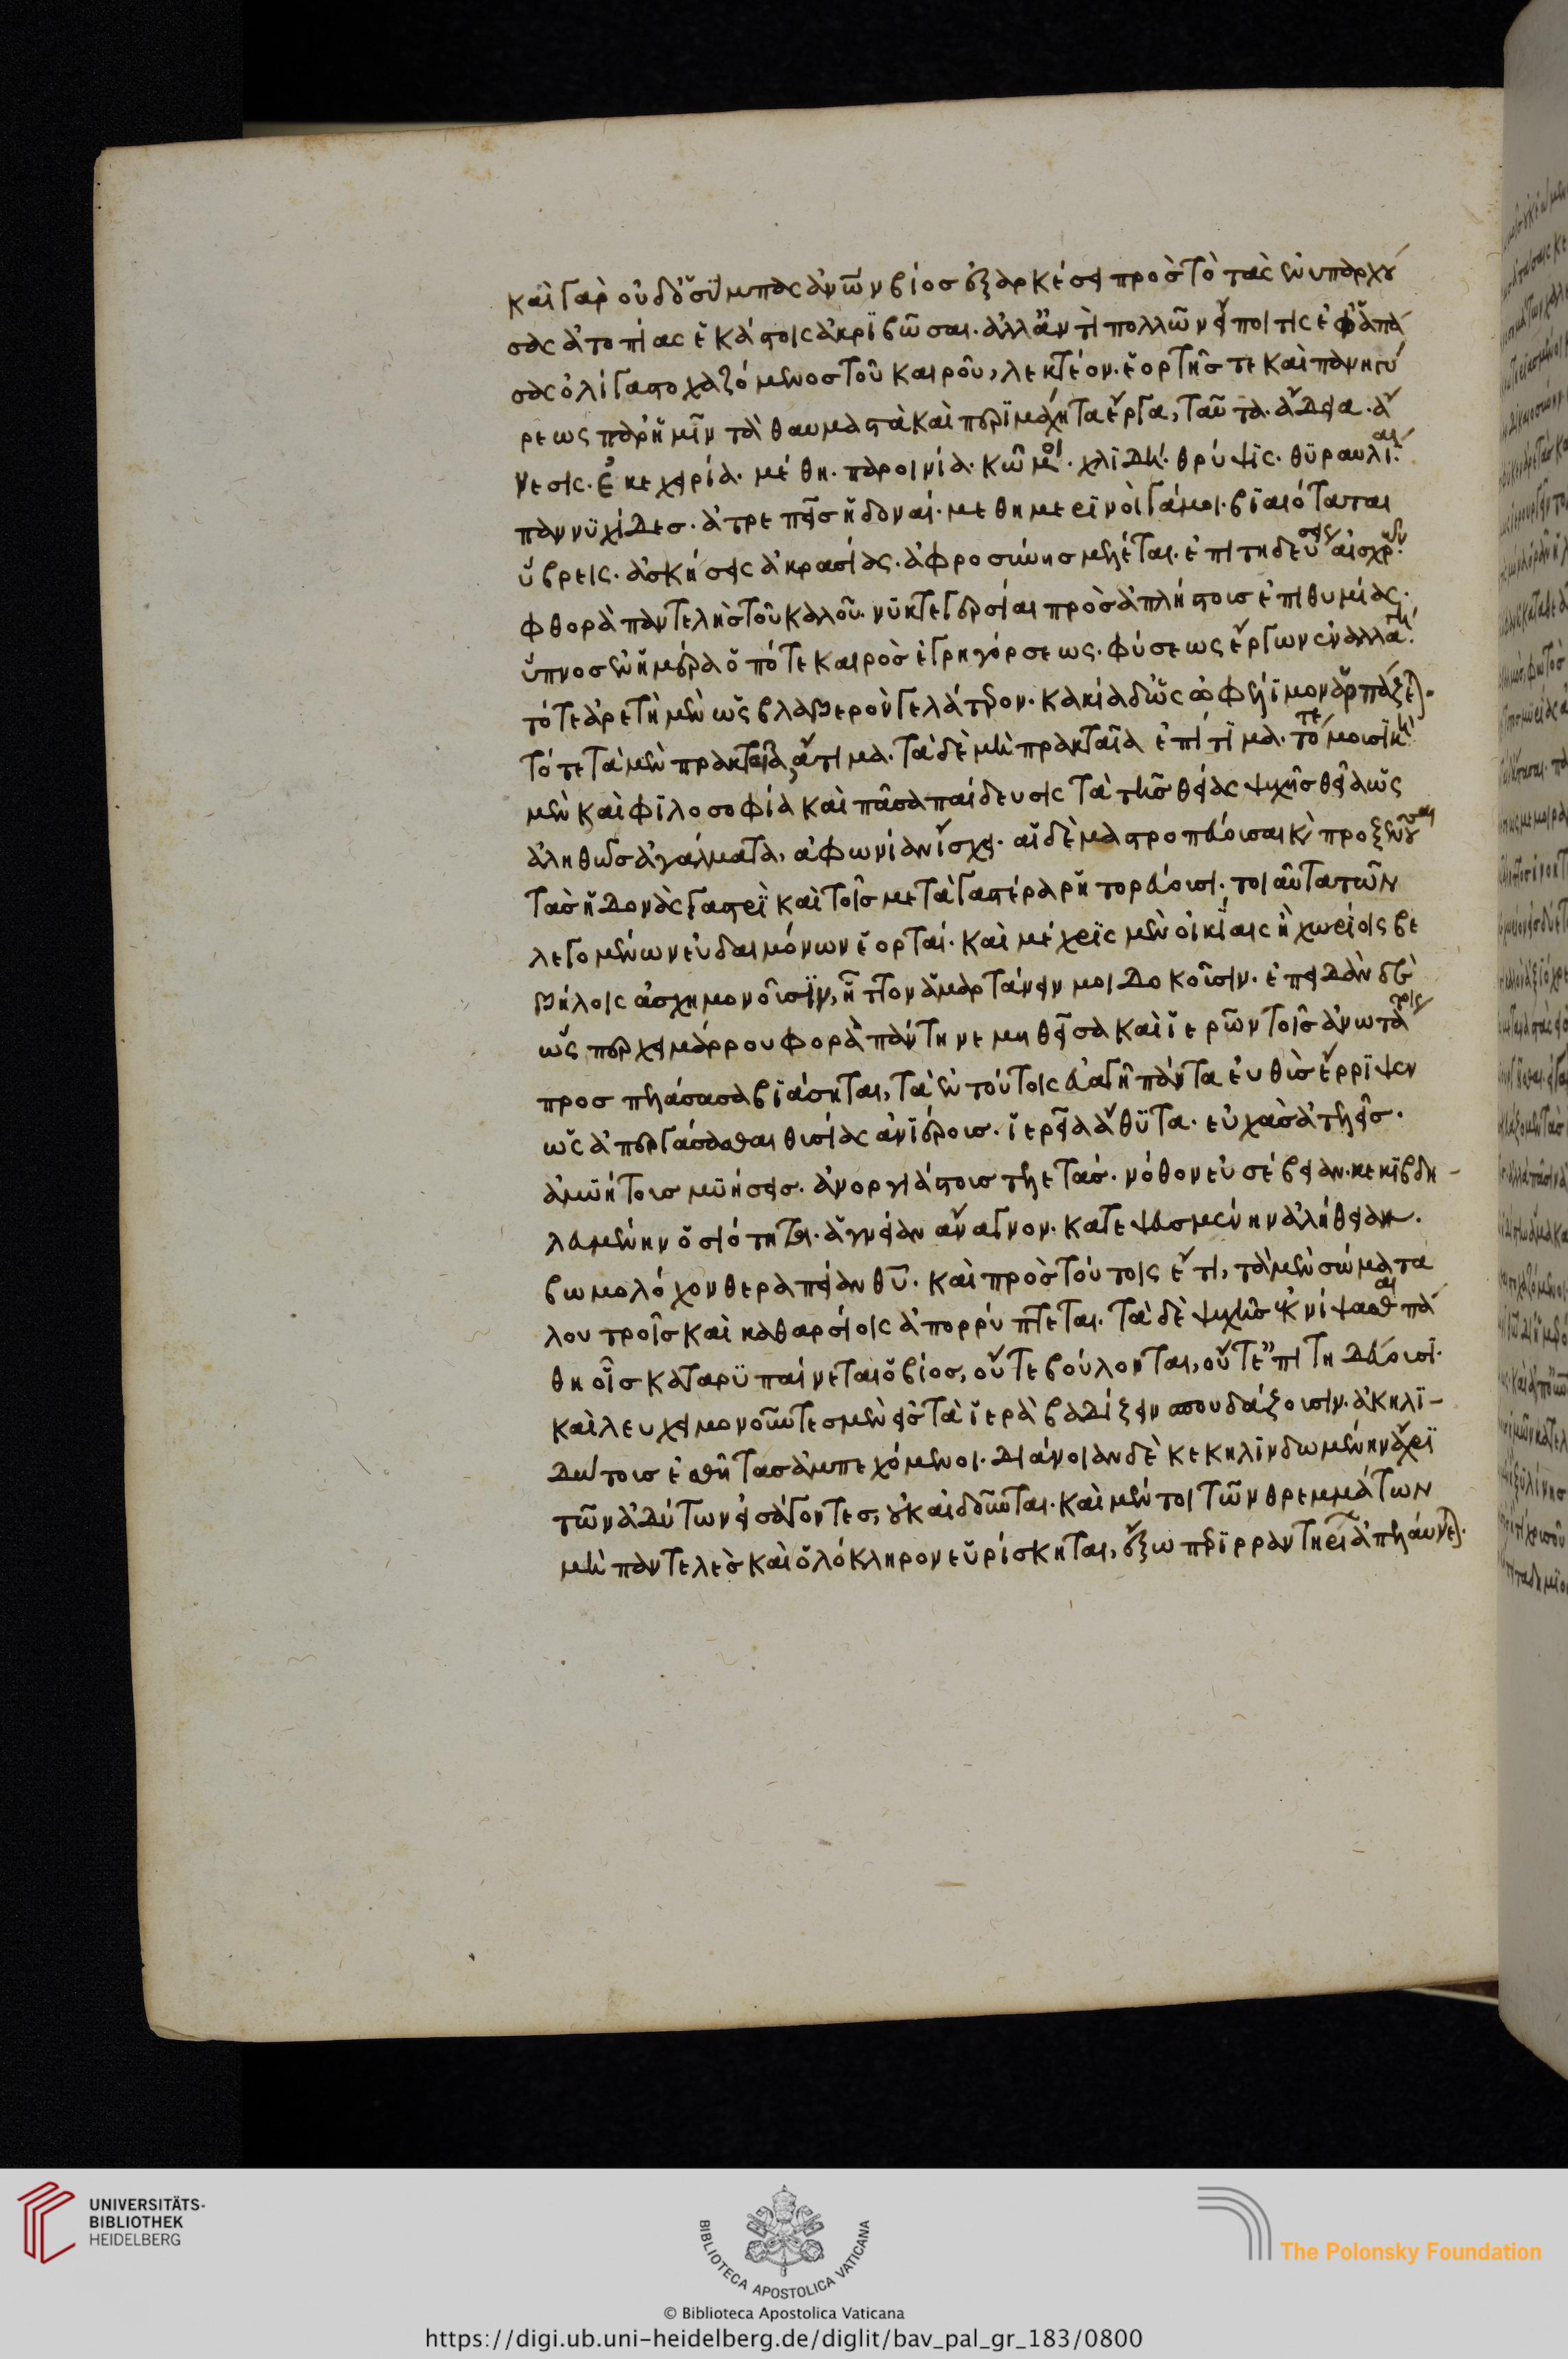 καὶ γὰρ οὐδ' ὁ σύμπας ἀνῶν βίος ἐξαρκέσει πρὸς τὸ τὰς ἐνυπαρχού
σας ἀτοπίας ἑκάστοις ἀκριβῶσαι. ἀλλ' ἂν τὶ πολλῶν εἴποι τις ἐφ' ἁπά
σας ὀλίγα στοχαζόμενος τοῦ καιροῦ, λεκτέον. ἑορτῆς τε καὶ πανηγύ
ρεως παρ' ἡμῖν τὰ θαυμαστὰ καὶ περιμάχητα ἔργα, ταῦτα. ἄδεια. ἄ
νεσις. ἐκεχειρία. μέθη. παροινία. κῶμοι. χλιδή. θρύψις. θυραυλίαι.
παννυχίδες. ἀτρεπεῖς ἡδοναί. μεθημερινοὶ γάμοι. βιαιόταται
ὕβρεις. ἀσκήσεις ἀκρασίας. ἀφροσύνης μελέται. ἐπιτηδεύσεις αἰσχρῶν.
φθορὰ παντελὴς τοῦ καλοῦ. νυκτεγερσίαι πρὸς ἀπλήστους ἐπιθυμίας.
ὕπνος ἐν ἡμέρα ὁπότε καιρὸς ἐγρηγόρσεως. φύσεως ἔργων ἐναλλαγή.
τότε ἀρετὴ μὲν ὡς βλαβερὸν γελᾶται. κακία δ' ὡς ὠφέλιμον ἁρπάζεται.
τότε τὰ μὲν πρακταῖα, ἄτιμα. τὰ δὲ μὴ πρακταῖα ἐπίτιμα. τότε μουσικὴ
μὲν καὶ φιλοσοφία καὶ πᾶσα παίδευσις τὰ τῆς θείας ψυχῆς θεῖα ὡς
ἀληθῶς ἀγάλματα, ἀφωνίαν ἴσχει. αἱ δὲ μαστροπεύουσαι κὶ προξενοῦσαι
τὰς ἡδονὰς γαστρὶ καὶ τοῖς μετὰ γαστέρα ῥητορεύουσι. τοιαῦτα τῶν
λεγομένων εὐδαιμόνων ἑορταί. καὶ μέχρις μὲν οἰκίαις ἢ χωρίοις βε
βήλοις ἀσχημονοῦσιν, ἧττον ἁμαρτάνειν μοι δοκοῦσιν. ἐπειδὰν δὲ
ὡς περ χειμάρρου φορὰ πάντη νεμηθεῖσα καὶ ἱερῶν τοῖς ἀνωτάτοις
προσπελάσασα βιάσηται, τὰ ἐν τούτοις εὐαγῆ πάντα εὐθὺς ἔρριψεν
ὡς ἀπεργάσασθαι θυσίας ἀνιέρους. ἱερεῖα ἄθυτα. εὐχὰς ἀτελεῖς.
ἀμυήτους μυήσεις. ἀνοργιάστους τελετάς. νόθον εὐσέβειαν. κεκιβδη-
λευμένην ὁσιότητα. ἁγνείαν ἄναγνον. κατεψευσμένην ἀλήθειαν.
βωμολόχον θεραπείαν θυ. καὶ πρὸς τούτοις ἔτι, τὰ μὲν σώματα
λουτροῖς καὶ καθαρσίοις ἀπορρύπτεται. τὰ δὲ ψυχῆς ἐκνίψασθαι πά
θη οἷς καταρυπαίνεται ὁ βίος, οὔτε βούλονται, οὔτε ἐπιτηδεύουσι.
καὶ λευχειμονοῦντες μὲν εἰς τὰ ἱερὰ βαδίζειν σπουδάζουσιν. ἀκηλι-
δώτους ἐσθῆτας ἀμπεχόμενοι. διάνοιαν δὲ κεκηλινδωμένην ἄχρι
τῶν ἀδύτων εἰσάγοντες, οὐκ αἰδοῦνται. καὶ μέν τοι τῶν θρεμμάτων
μὴ παντελὲς καὶ ὁλόκληρον εὑρίσκηται, ἔξω περιρραντηρίων ἀπελαύνεται.
UNIVERSITÄTS-
BIBLIOTHEK
HEIDELBERG
BIBLIOTECA APOSTOLICA VATICANA
The Polonsky Foundation
© Biblioteca Apostolica Vaticana
https://digi.ub.uni-heidelberg.de/diglit/bav_pal_gr_183/0800